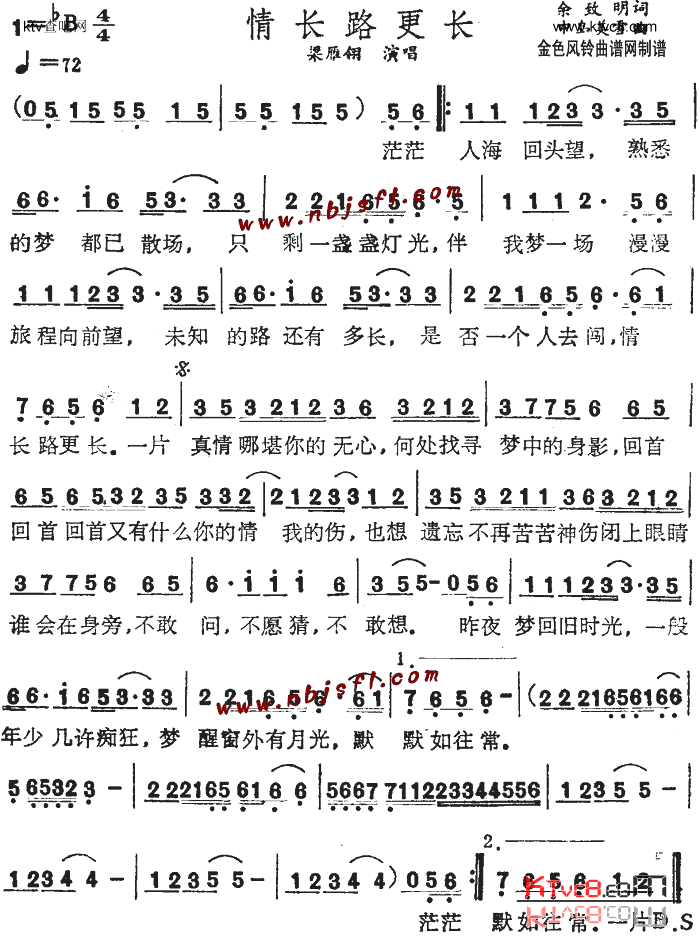 1=♭B 4/4 情长路更长 余致明词
♩=72 梁雁翎 演唱 曲
金色风铃曲谱网制谱
(05 15 55 15 | 55 155) 56 ‖: 11 1233·35
茫茫 人海 回头望, 熟悉
66·i6 53·33 | 221656·5 | 1112·56
www.nbjsft.com
的梦 都已 散场, 只 剩一盏盏灯光,伴 我梦一场 漫漫
111233·35 | 66·i6 53·33 | 221656·65
旅程向前望, 未知 的路 还有 多长, 是 否一个人去闯,情
7656 12 | 35 3212 36 3212 | 37756 65
长路更长。一片 真情哪堪你的无心,何处找寻 梦中的身影,回首
6565.3235332 | 2123312 | 35 3211 363212
回首回首又有什么你的情 我的伤,也想 遗忘不再苦苦神伤闭上眼睛
37756 65 | 6·iii 6 | 355-056 | 111233·35
谁会在身旁,不敢 问,不愿猜,不 敢想。 昨夜 梦回旧时光,一般
66·i653·33 | 221656·61 | 7656- (2221656166
1.
www.nbjsft.com
年少几许痴狂,梦 醒窗外有月光,默 默如往常。
565323- | 2221656166 | 5667711223344556 | 12355-
2.
12344- | 12355- | 12344) 056 :‖ 7656 12
KTvc8.com
茫茫 默如往常。一片D.S